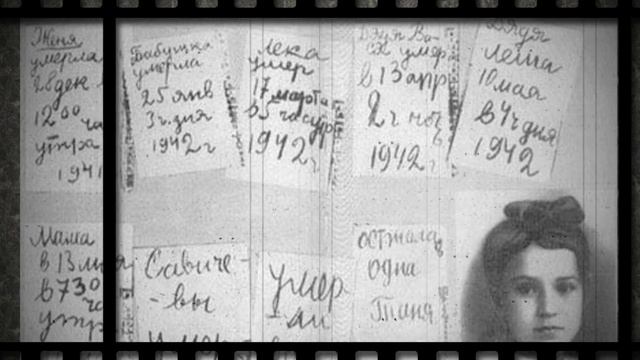 Женя
умерла
28 дек
12 00 ча
утра
1941
Бабушка
умерла
25 янв
3 ч. дня
1942 г
Лека
умер
17 марта
в 5 час утр
1942 г
Дядя Ва-
ся умер
в 13 апр
2 ч ноч
1942 г
Дядя
Леша
10 мая
в 4 ч дня
1942
Мама
в 13 мая
в 7 30
ча
утр
Савиче-
-вы
умер
-ли
осталас
одна
Таня